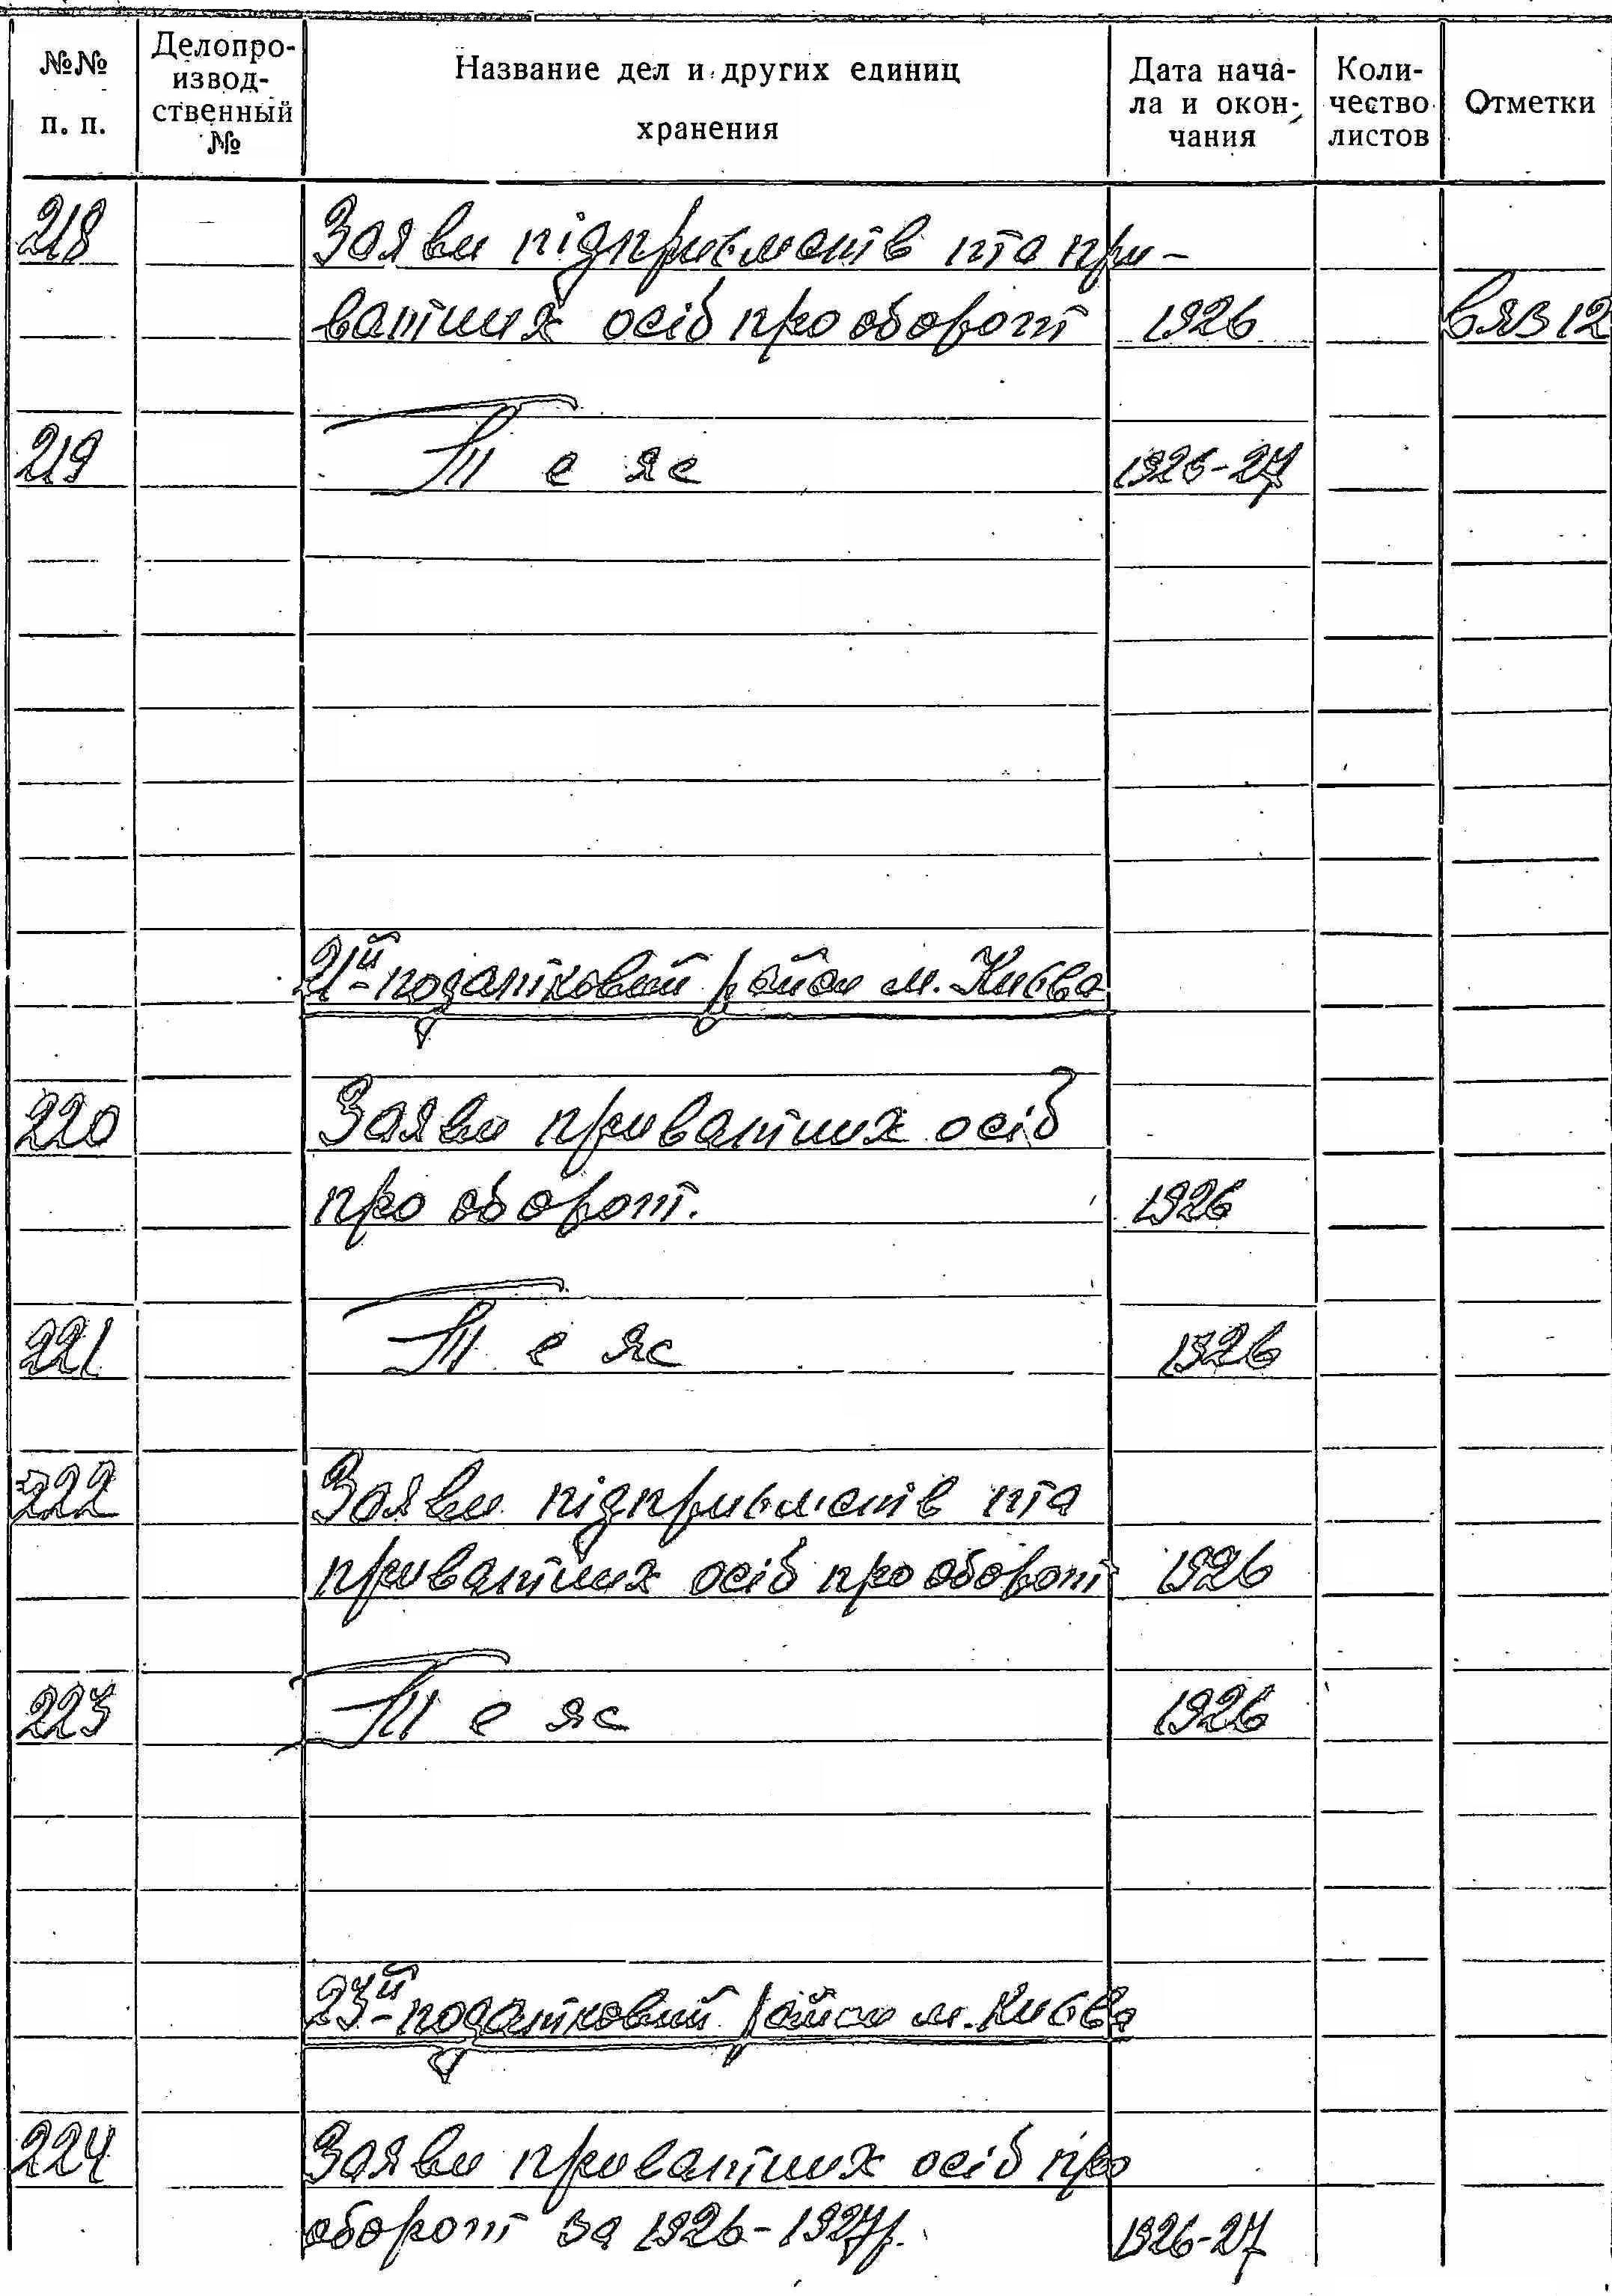 №№ п. п. Делопро-извод-ственный № Название дел и других единиц хранения Дата нача-ла и окон-чания Коли-чество листов Отметки
218 Заяви підприємств та при-
ватних осіб про оборот 1926 Вяз 12
219 Те ж 1926-27
21й податковий район м. Києва
220 Заяви приватних осіб
про оборот. 1926
221 Те ж 1926
222 Заяви підприємств та
приватних осіб про оборот 1926
223 Те ж 1926
23й податковий район м. Києва
224 Заяви приватних осіб про
оборот за 1926-1927р. 1926-27